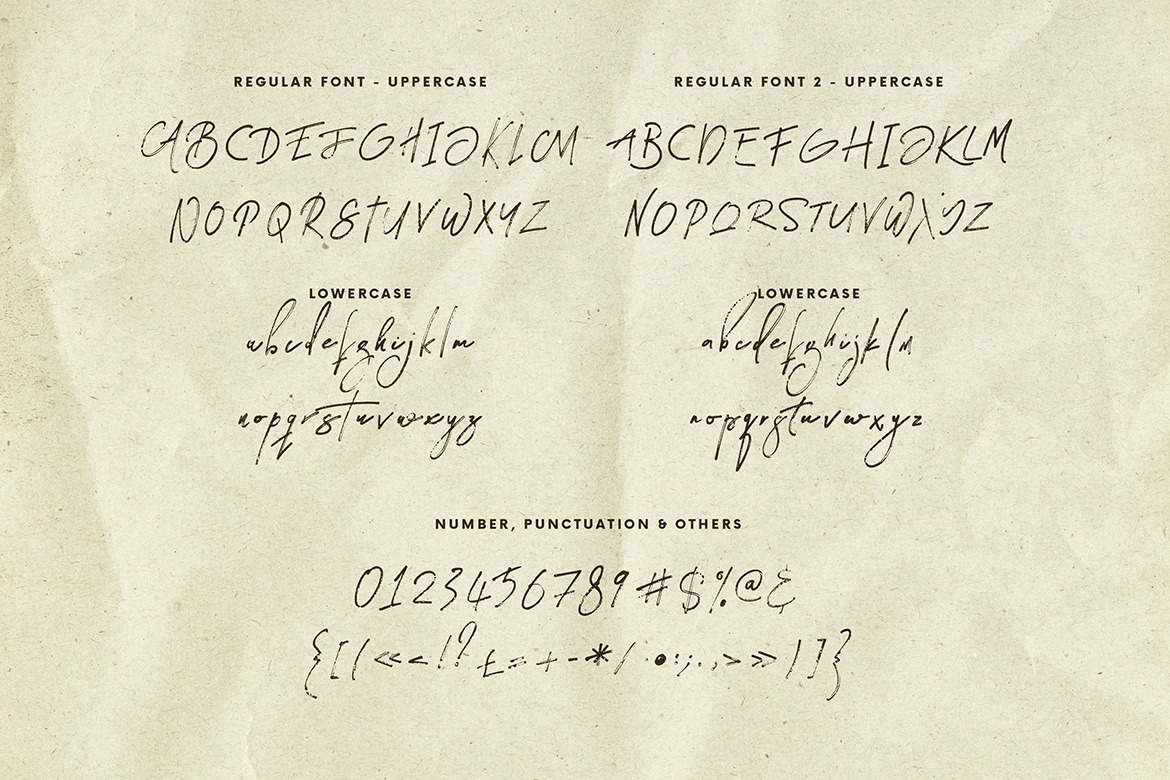 REGULAR FONT - UPPERCASE
ABCDEFGHIJKLM
NOPQRSTUVWXYZ
LOWERCASE
abcdefghijklm
nopqrstuvwxyz
REGULAR FONT 2 - UPPERCASE
ABCDEFGHIJKLM
NOPQRSTUVWXYZ
LOWERCASE
abcdefghijklm
nopqrstuvwxyz
NUMBER, PUNCTUATION & OTHERS
0123456789#$%@&
{[(«<!?±=+-*/•:;.,>»)]}